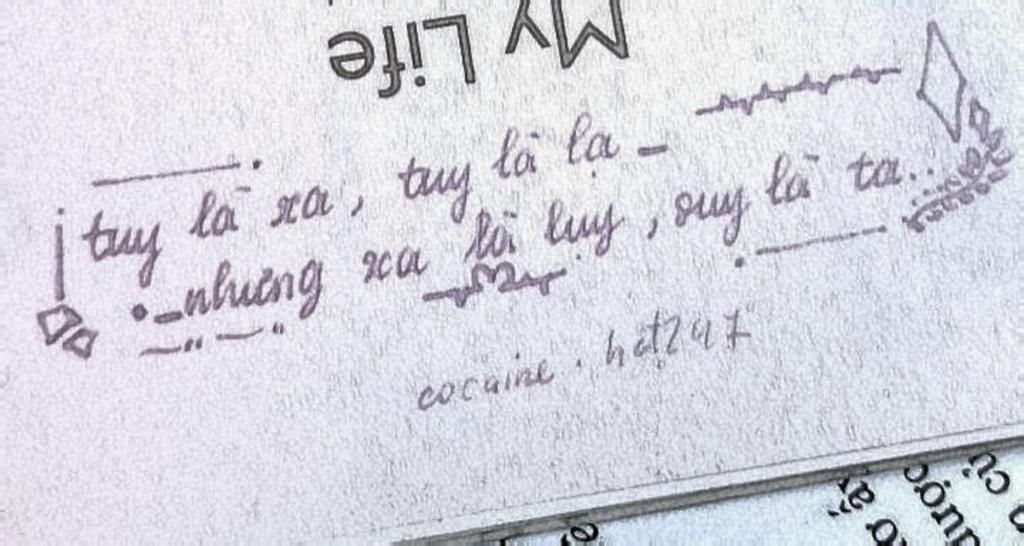 My Life
tuy là xa, tuy là lạ -
- nhưng xa là luy, suy là ta..
cocaine . hot247